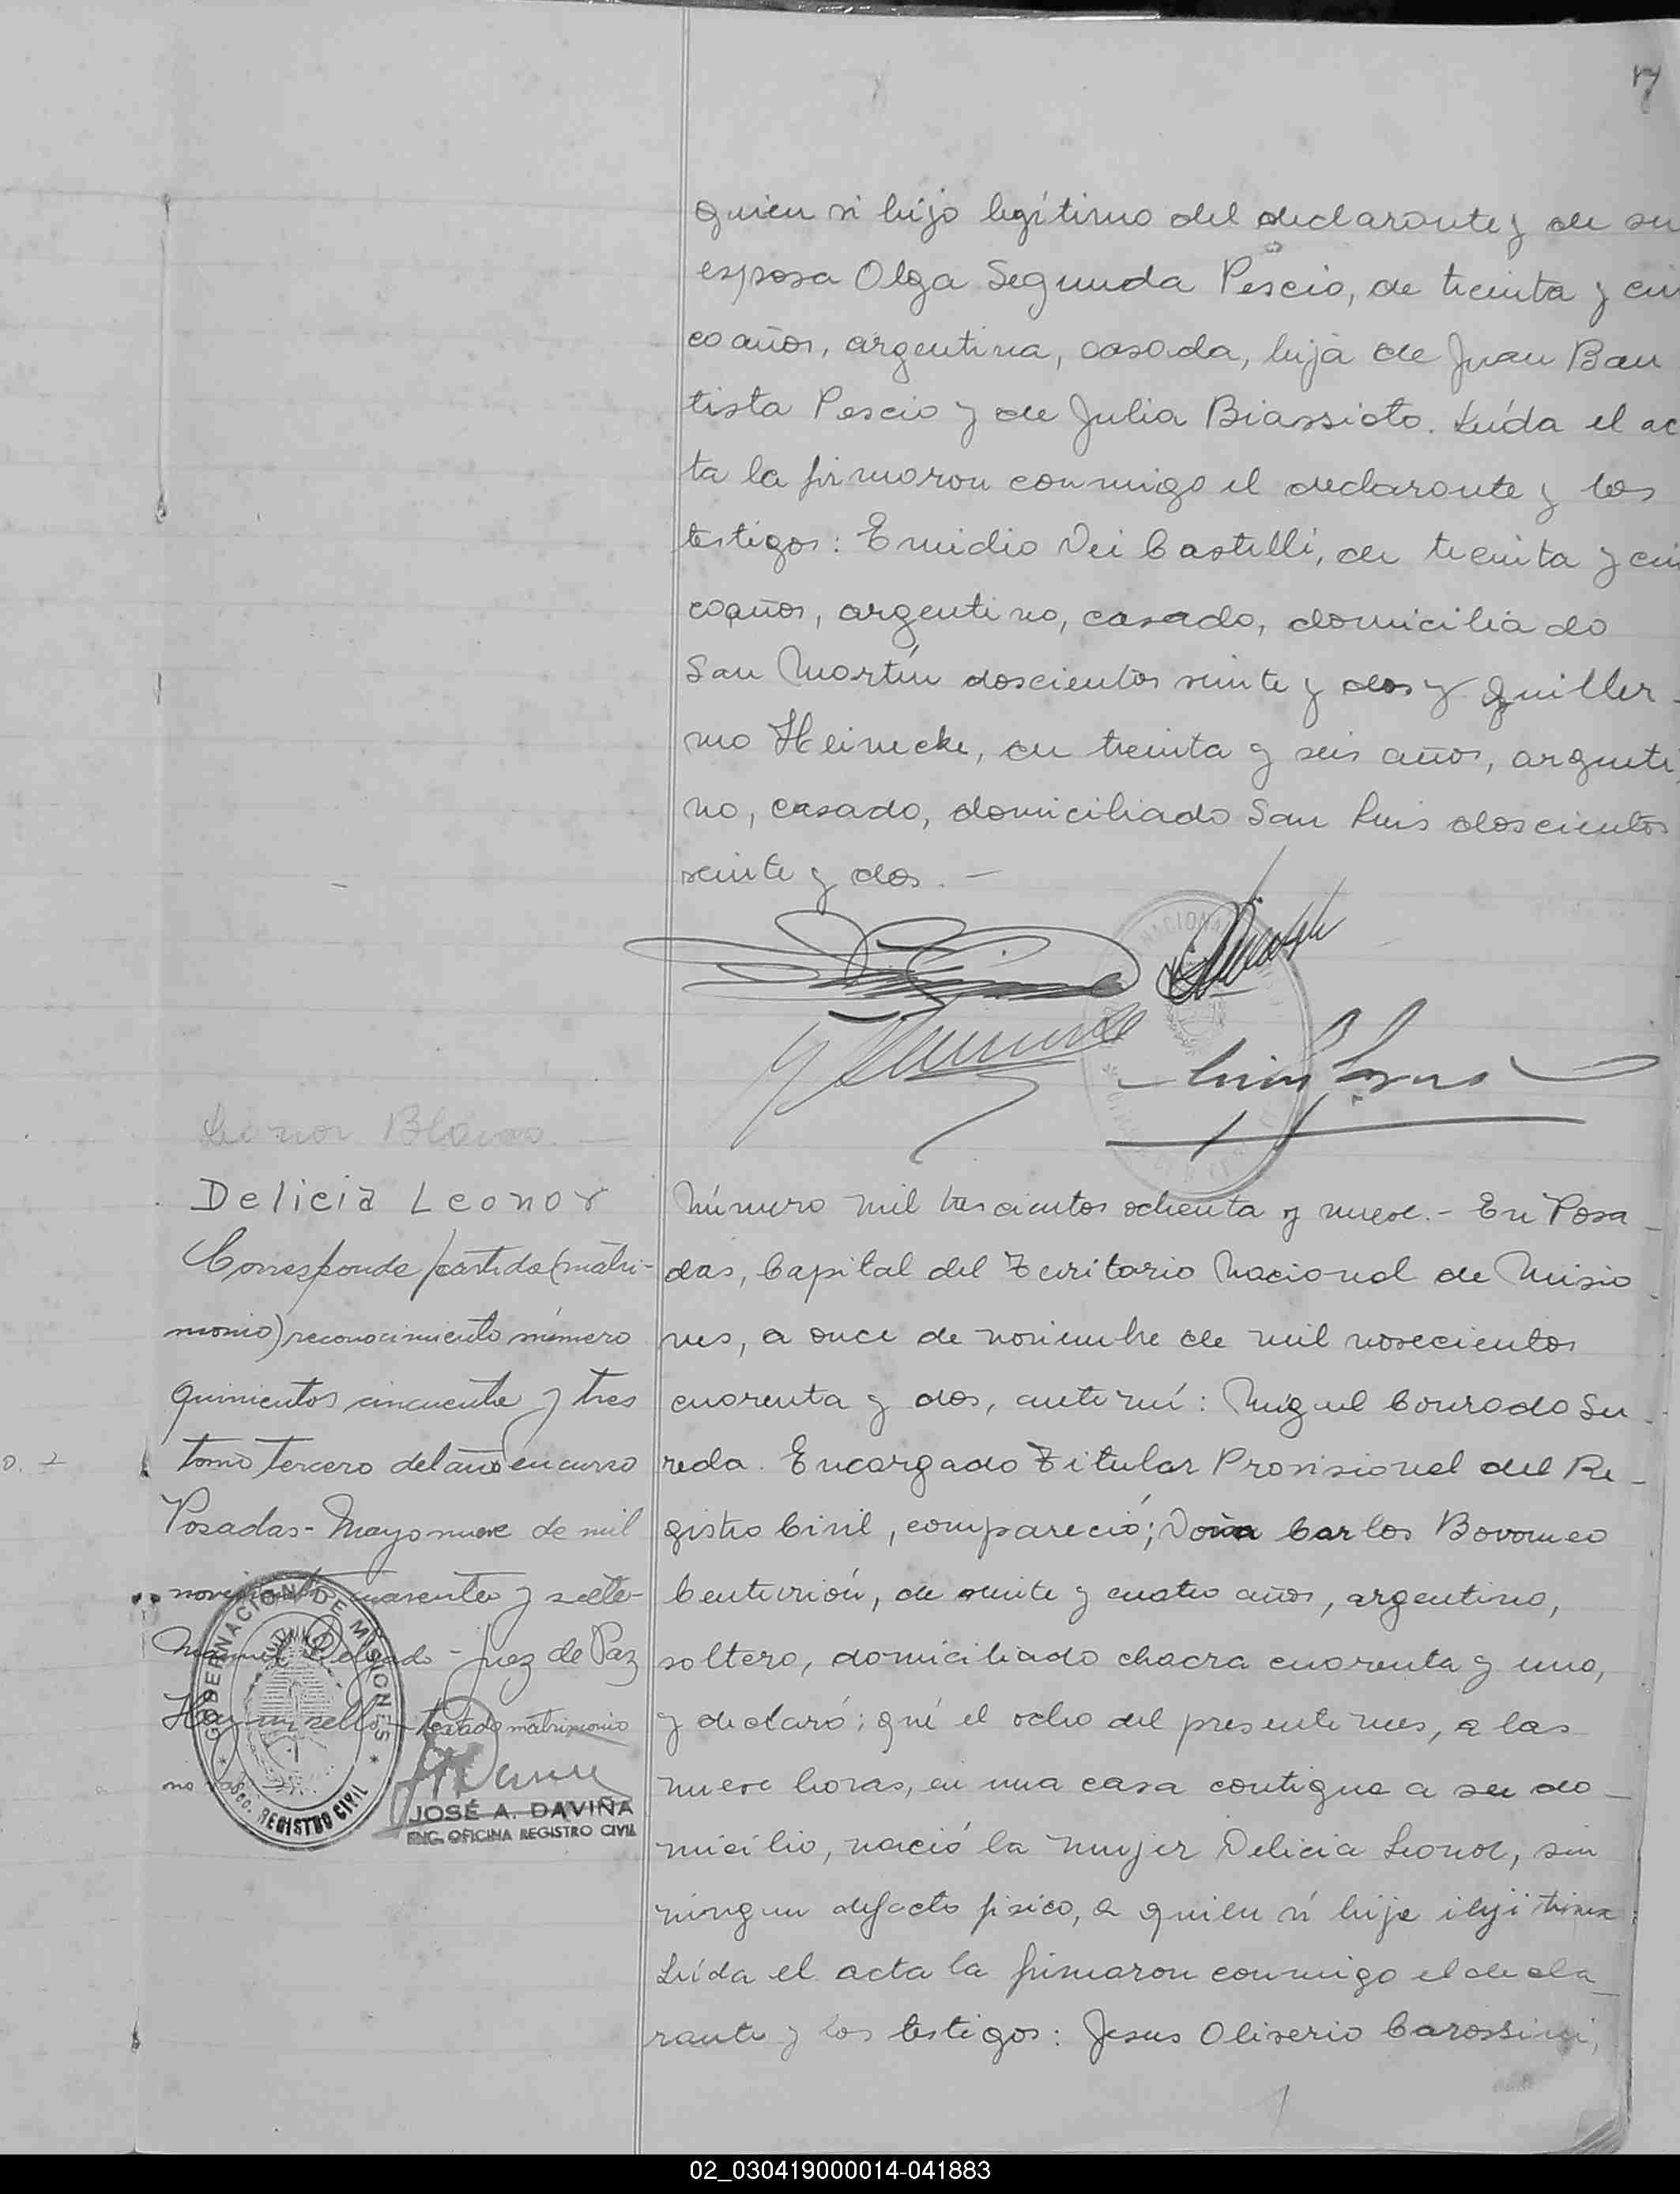 17
quien si hijo legítimo del declarante y de su
esposa Olga Segunda Pescio, de treinta y cin
co años, argentina, casada, hija de Juan Bau
tista Pescio y de Julia Biassioto. Leída el ac
ta la firmaron conmigo el declarante y los
testigos: Emidio Dei Castelli, de treinta y cin
co años, argentino, casado, domiciliado
San Martín doscientos veinte y dos y Guiller-
mo Heinecke, de treinta y seis años, argenti
no, casado, domiciliado San Luis doscientos
veinte y dos. —
Leonor Blanco. —
Delicia Leonor
Corresponde partida (matri-
monio) reconocimiento número
quinientos cincuenta y tres
tomo tercero del año en curso
Posadas - Mayo nueve de mil
novecientos cuarenta y siete-
Manuel Delgado - Juez de Paz
Hay un sello - testado matrimonio
no vale
GOBERNACION DE MISIONES
REGISTRO CIVIL
JOSÉ A. DAVIÑA
ENC. OFICINA REGISTRO CIVIL
Número mil trescientos ochenta y nueve. - En Posa-
das, Capital del Territorio Nacional de Misio-
nes, a once de noviembre de mil novecientos
cuarenta y dos, ante mí: Miguel Conrado Su-
reda. Encargado Titular Provisional del Re-
gistro Civil, compareció; Don Carlos Boromeo
Centurión, de veinte y cuatro años, argentino,
soltero, domiciliado chacra cuarenta y uno,
y declaró; qué el ocho del presente mes, a las
nueve horas, en una casa contigua a su do-
micilio, nació la mujer Delicia Leonor, sin
ningun defecto fisico, a quien si hija ilejitima.
Leída el acta la firmaron conmigo el decla-
rante y los testigos: Jesus Oliverio Carossini,
02_030419000014-041883